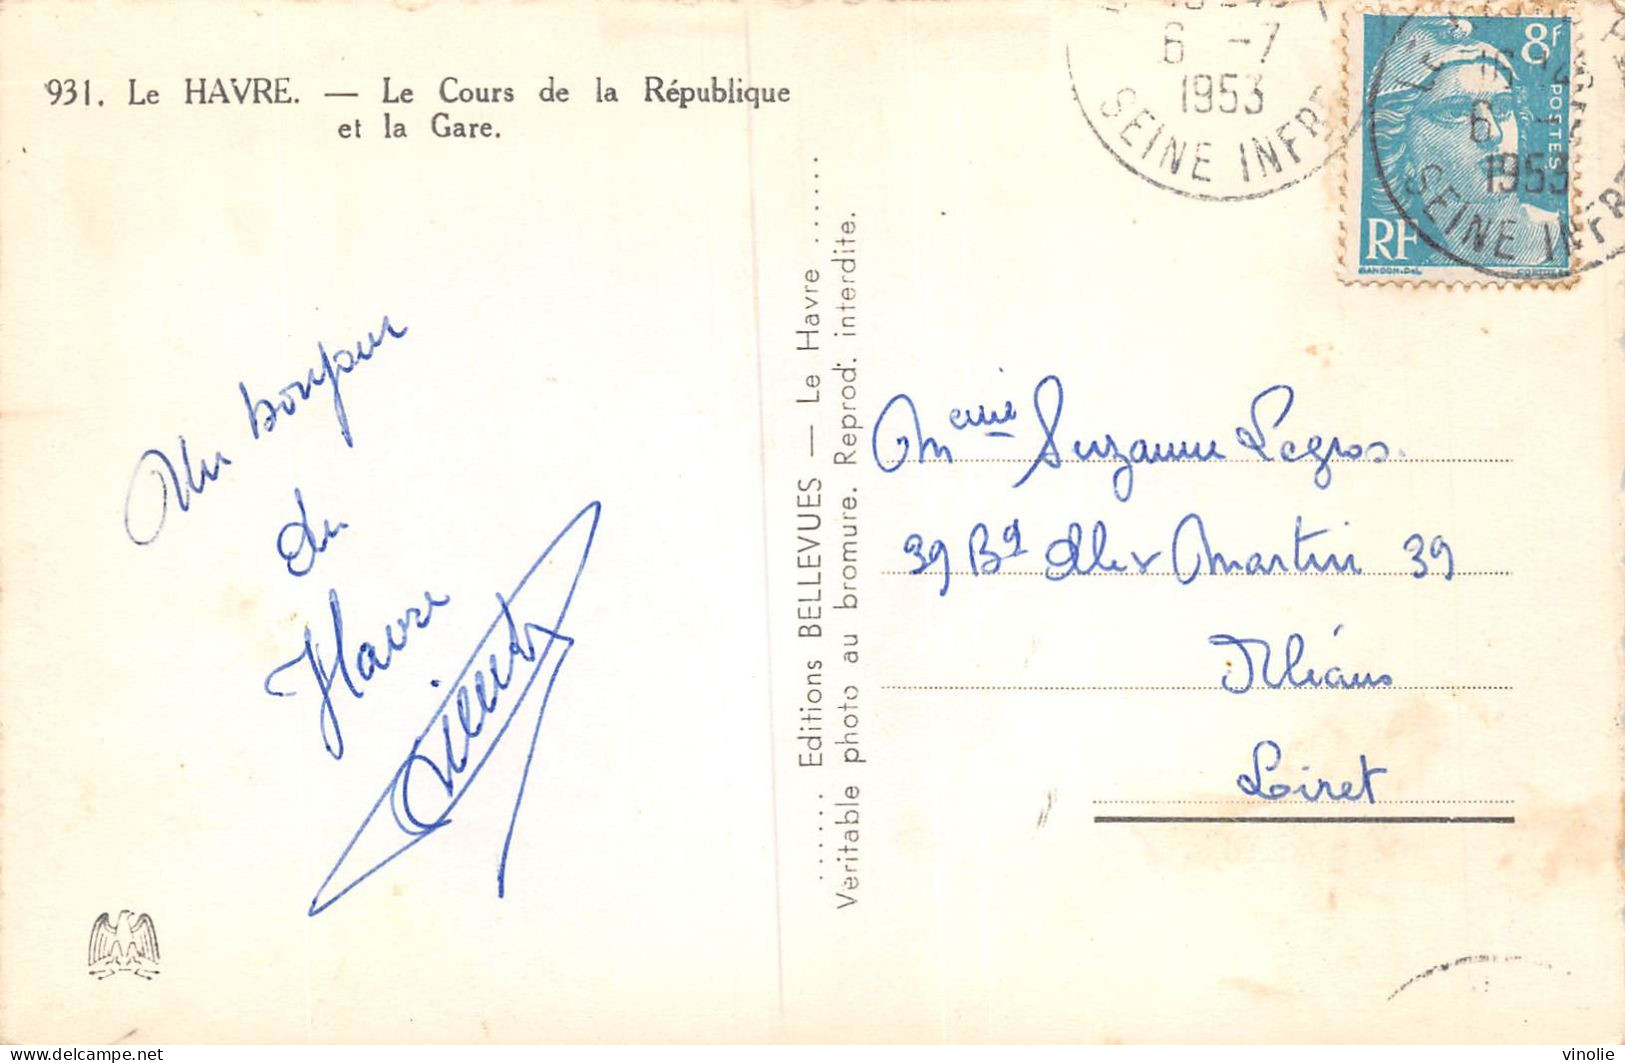 931. Le HAVRE. — Le Cours de la République
et la Gare.
Un bonjour
du
Havre
...... Editions BELLEVUES — Le Havre ......
Véritable photo au bromure. Reprod. interdite.
6 -7
1953
SEINE INFRE
8F
POSTES
RF
GANDON.DEL
LE
16
6 -7
1953
SEINE INFRE
Meme Suzanne Legros.
39 Bd Alex Martin 39
Orléans
Loiret
vinolie